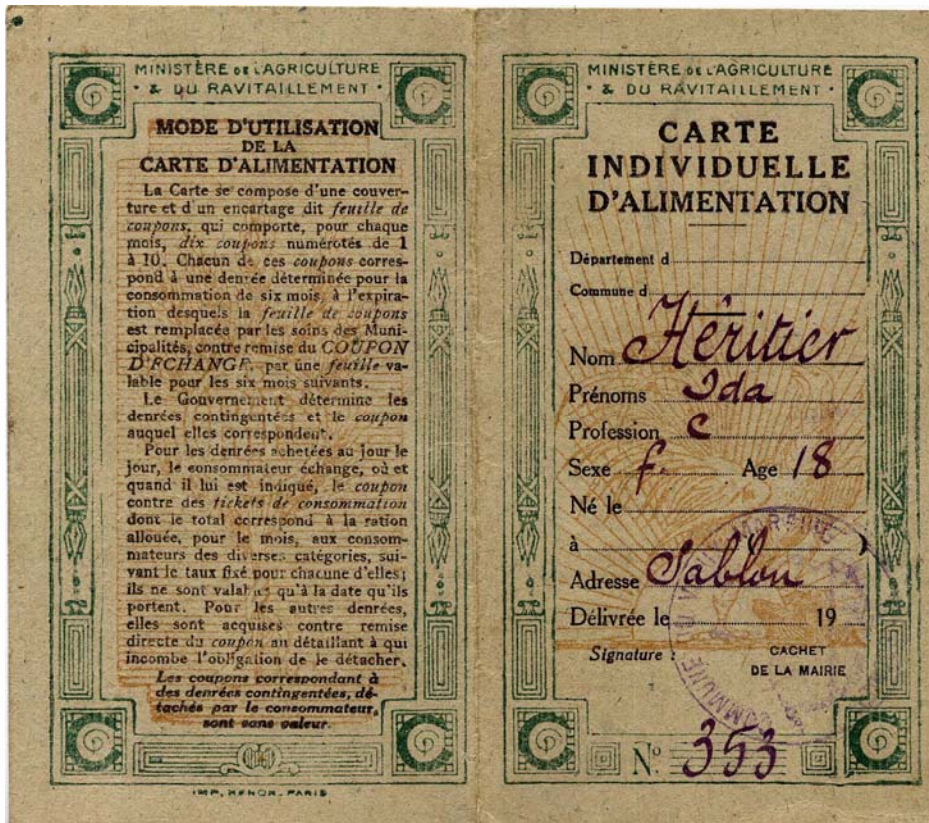 MINISTÈRE DE L'AGRICULTURE
& DU RAVITAILLEMENT
MODE D'UTILISATION
DE LA
CARTE D'ALIMENTATION
La Carte se compose d'une couver-
ture et d'un encartage dit feuille de
coupons, qui comporte, pour chaque
mois, dix coupons numérotés de 1
à 10. Chacun de ces coupons corres-
pond à une denrée déterminée pour la
consommation de six mois, à l'expira-
tion desquels la feuille de coupons
est remplacée par les soins des Muni-
cipalités, contre remise du COUPON
D'ÉCHANGE, par une feuille va-
lable pour les six mois suivants.
Le Gouvernement détermine les
denrées contingentées et le coupon
auquel elles correspondent.
Pour les denrées achetées au jour le
jour, le consommateur échange, où et
quand il lui est indiqué, le coupon
contre des tickets de consommation
dont le total correspond à la ration
allouée, pour le mois, aux consom-
mateurs des diverses catégories, sui-
vant le taux fixé pour chacune d'elles;
ils ne sont valables qu'à la date qu'ils
portent. Pour les autres denrées,
elles sont acquises contre remise
directe du coupon au détaillant à qui
incombe l'obligation de le détacher.
Les coupons correspondant à
des denrées contingentées, dé-
tachés par le consommateur,
sont sans valeur.
IMP. RENON - PARIS
MINISTÈRE DE L'AGRICULTURE
& DU RAVITAILLEMENT
CARTE
INDIVIDUELLE
D'ALIMENTATION
Département d
Commune d
Nom Héritier
Prénoms Ida
Profession C
Sexe f. Age 18
Né le
à
Adresse Sablon
Délivrée le 19
Signature :
CACHET
DE LA MAIRIE
COMMUNE
N° 353